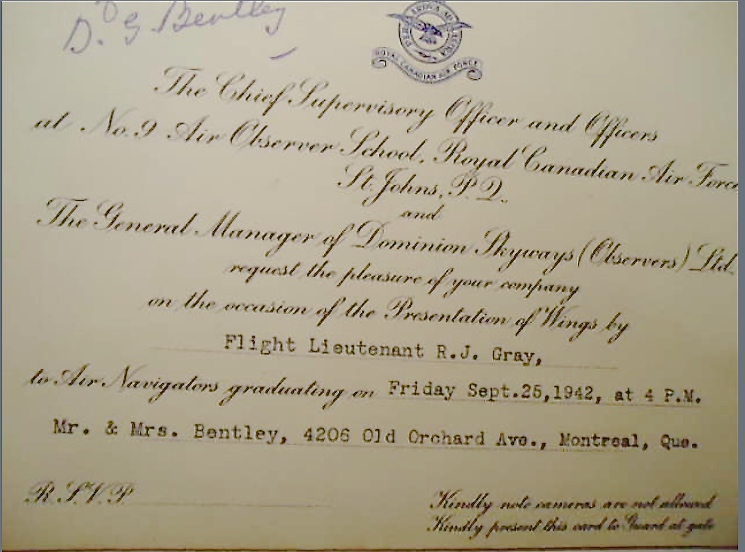 D. G. Bentley
PER ARDUA AD ASTRA
ROYAL CANADIAN AIR FORCE
The Chief Supervisory Officer and Officers
at No. 9 Air Observer School, Royal Canadian Air Force
St. Johns, P.Q.
and
The General Manager of Dominion Skyways (Observers) Ltd.
request the pleasure of your company
on the occasion of the Presentation of Wings by
Flight Lieutenant R.J. Gray,
to Air Navigators graduating on Friday Sept.25,1942, at 4 P.M.
Mr. & Mrs. Bentley, 4206 Old Orchard Ave., Montreal, Que.
R.S.V.P
Kindly note cameras are not allowed
Kindly present this card to Guard at gate